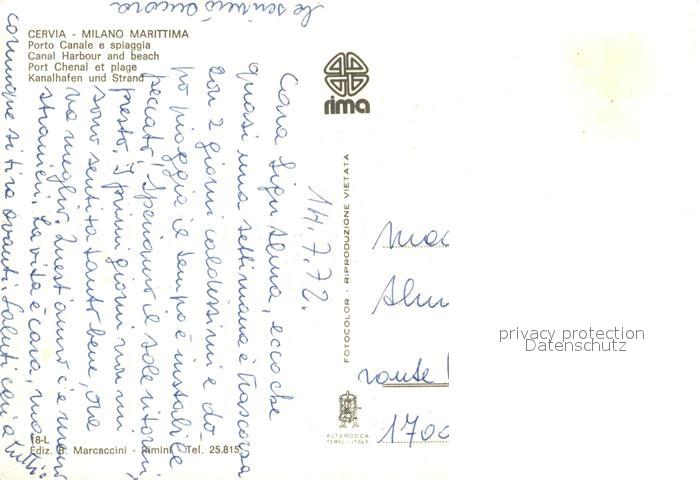 CERVIA - MILANO MARITTIMA
Porto Canale e spiaggia
Canal Harbour and beach
Port Chenal et plage
Kanalhafen und Strand
rima
14.7.72.
Cara Sign. Alma, ecco che
quasi una settimana è trascorsa
con 2 giorni caldissimi e do-
po pioggia il tempo è instabile
peccato! Speriamo il sole ritorni
presto. I primi giorni non mi
sono sentita tanto bene, ora
va meglio. Quest'anno c'è meno
stranieri. La vita è cara, ma
comunque si tira avanti. Saluti cari a tutti
Le scriverò ancora
FOTOCOLOR - RIPRODUZIONE VIETATA
ALTEROCCA
TERNI - ITALY
1700
privacy protection
Datenschutz
18-L
Ediz. B. Marcaccini - Rimini Tel. 25.815